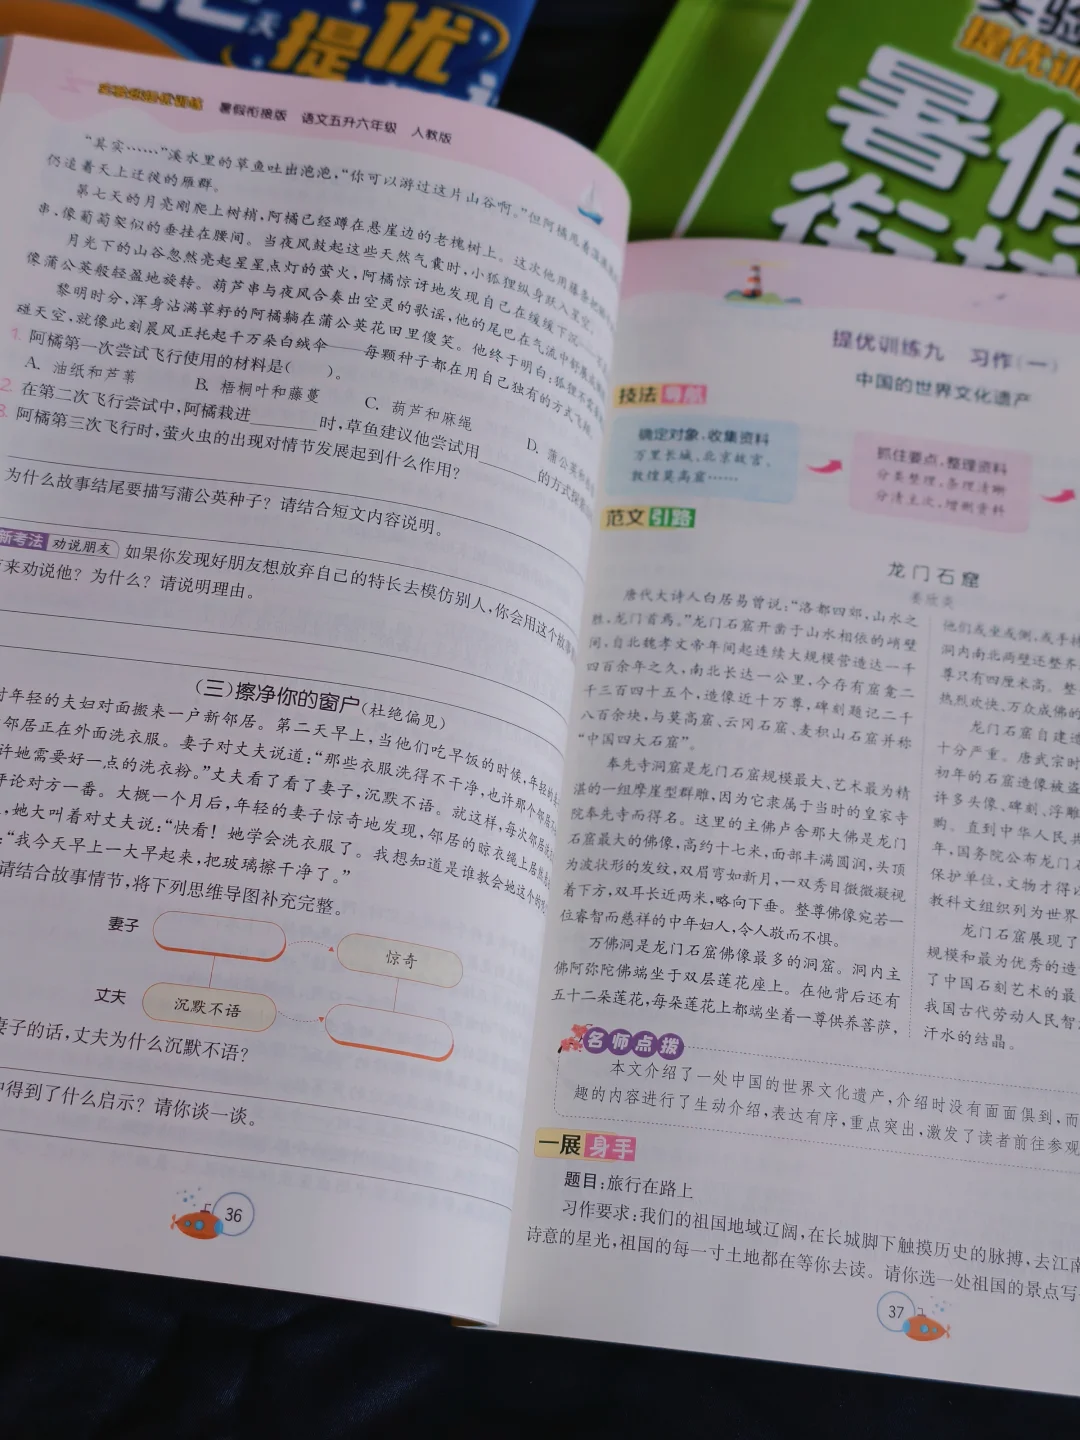 天提优
实验
提优训
暑假
衔接
实验班提优训练 暑假衔接版 语文五升六年级 人教版
“其实……”溪水里的草鱼吐出泡泡，“你可以游过这片山谷啊。”但阿橘
仍追着天上迁徙的雁群。
第七天的月亮刚爬上树梢，阿橘已经蹲在悬崖边的老槐树上。这次他用藤条把
串，像葡萄架似的垂挂在腰间。当夜风鼓起这些天然气囊时，小狐狸纵身跃入星空。
月光下的山谷忽然亮起星星点灯的萤火，阿橘惊讶地发现自己在缓缓下沉
像蒲公英般轻盈地旋转。葫芦串与夜风合奏出空灵的歌谣，他的尾巴在气流中
黎明时分，浑身沾满草籽的阿橘躺在蒲公英花田里傻笑。他终于明白：狐狸不需要
碰天空，就像此刻晨风正托起千万朵白绒伞——每颗种子都在用自己独有的方式飞翔。
1. 阿橘第一次尝试飞行使用的材料是（ ）。
A. 油纸和芦苇 B. 梧桐叶和藤蔓 C. 葫芦和麻绳 D. 蒲公英和
2. 在第二次飞行尝试中，阿橘栽进 时，草鱼建议他尝试用 的方式探
3. 阿橘第三次飞行时，萤火虫的出现对情节发展起到什么作用？
为什么故事结尾要描写蒲公英种子？请结合短文内容说明。
新考法 劝说朋友 如果你发现好朋友想放弃自己的特长去模仿别人，你会用这个故事
来劝说他？为什么？请说明理由。
（三）擦净你的窗户（杜绝偏见）
对年轻的夫妇对面搬来一户新邻居。第二天早上，当他们吃早饭的时候，年轻的
邻居正在外面洗衣服。妻子对丈夫说道：“那些衣服洗得不干净，也许那个邻居
许她需要好一点的洗衣粉。”丈夫看了看了妻子，沉默不语。就这样，每次邻居
评论对方一番。大概一个月后，年轻的妻子惊奇地发现，邻居的晾衣绳上居然
，她大叫着对丈夫说：“快看！她学会洗衣服了。我想知道是谁教会她这个的
：“我今天早上一大早起来，把玻璃擦干净了。”
请结合故事情节，将下列思维导图补充完整。
妻子
惊奇
丈夫
沉默不语
妻子的话，丈夫为什么沉默不语？
中得到了什么启示？请你谈一谈。
36
提优训练九 习作（一）
中国的世界文化遗产
技法导航
确定对象，收集资料
万里长城、北京故宫、
敦煌莫高窟……
抓住要点，整理资料
分类整理，条理清晰
分清主次，增删资料
范文引路
龙门石窟
唐代大诗人白居易曾说：“洛都四郊，山水之
胜，龙门首焉。”龙门石窟开凿于山水相依的峭壁
间，自北魏孝文帝年间起连续大规模营造达一千
四百余年之久，南北长达一公里，今存有窟龛二
千三百四十五个，造像近十万尊，碑刻题记二千
八百余块，与莫高窟、云冈石窟、麦积山石窟并称
“中国四大石窟”。
奉先寺洞窟是龙门石窟规模最大、艺术最为精
湛的一组摩崖型群雕，因为它隶属于当时的皇家寺
院奉先寺而得名。这里的主佛卢舍那大佛是龙门
石窟最大的佛像，高约十七米，面部丰满圆润，头顶
为波状形的发纹，双眉弯如新月，一双秀目微微凝视
着下方，双耳长近两米，略向下垂。整尊佛像宛若一
位睿智而慈祥的中年妇人，令人敬而不惧。
万佛洞是龙门石窟佛像最多的洞窟。洞内主
佛阿弥陀佛端坐于双层莲花座上。在他背后还有
五十二朵莲花，每朵莲花上都端坐着一尊供养菩萨，
他们或坐或侧，或手持
洞内南北两壁还整齐
尊只有四厘米高。整
热烈欢快、万众成佛的
龙门石窟自建造
十分严重。唐武宗时
初年的石窟造像被盗
许多头像、碑刻、浮雕
购。直到中华人民共
年，国务院公布龙门石
保护单位，文物才得
教科文组织列为世界
龙门石窟展现了
规模和最为优秀的造
了中国石刻艺术的最
我国古代劳动人民智
汗水的结晶。
名师点拨
本文介绍了一处中国的世界文化遗产，介绍时没有面面俱到，而
趣的内容进行了生动介绍，表达有序，重点突出，激发了读者前往参观
一展身手
题目：旅行在路上
习作要求：我们的祖国地域辽阔，在长城脚下触摸历史的脉搏，去江南
诗意的星光，祖国的每一寸土地都在等你去读。请你选一处祖国的景点写
37